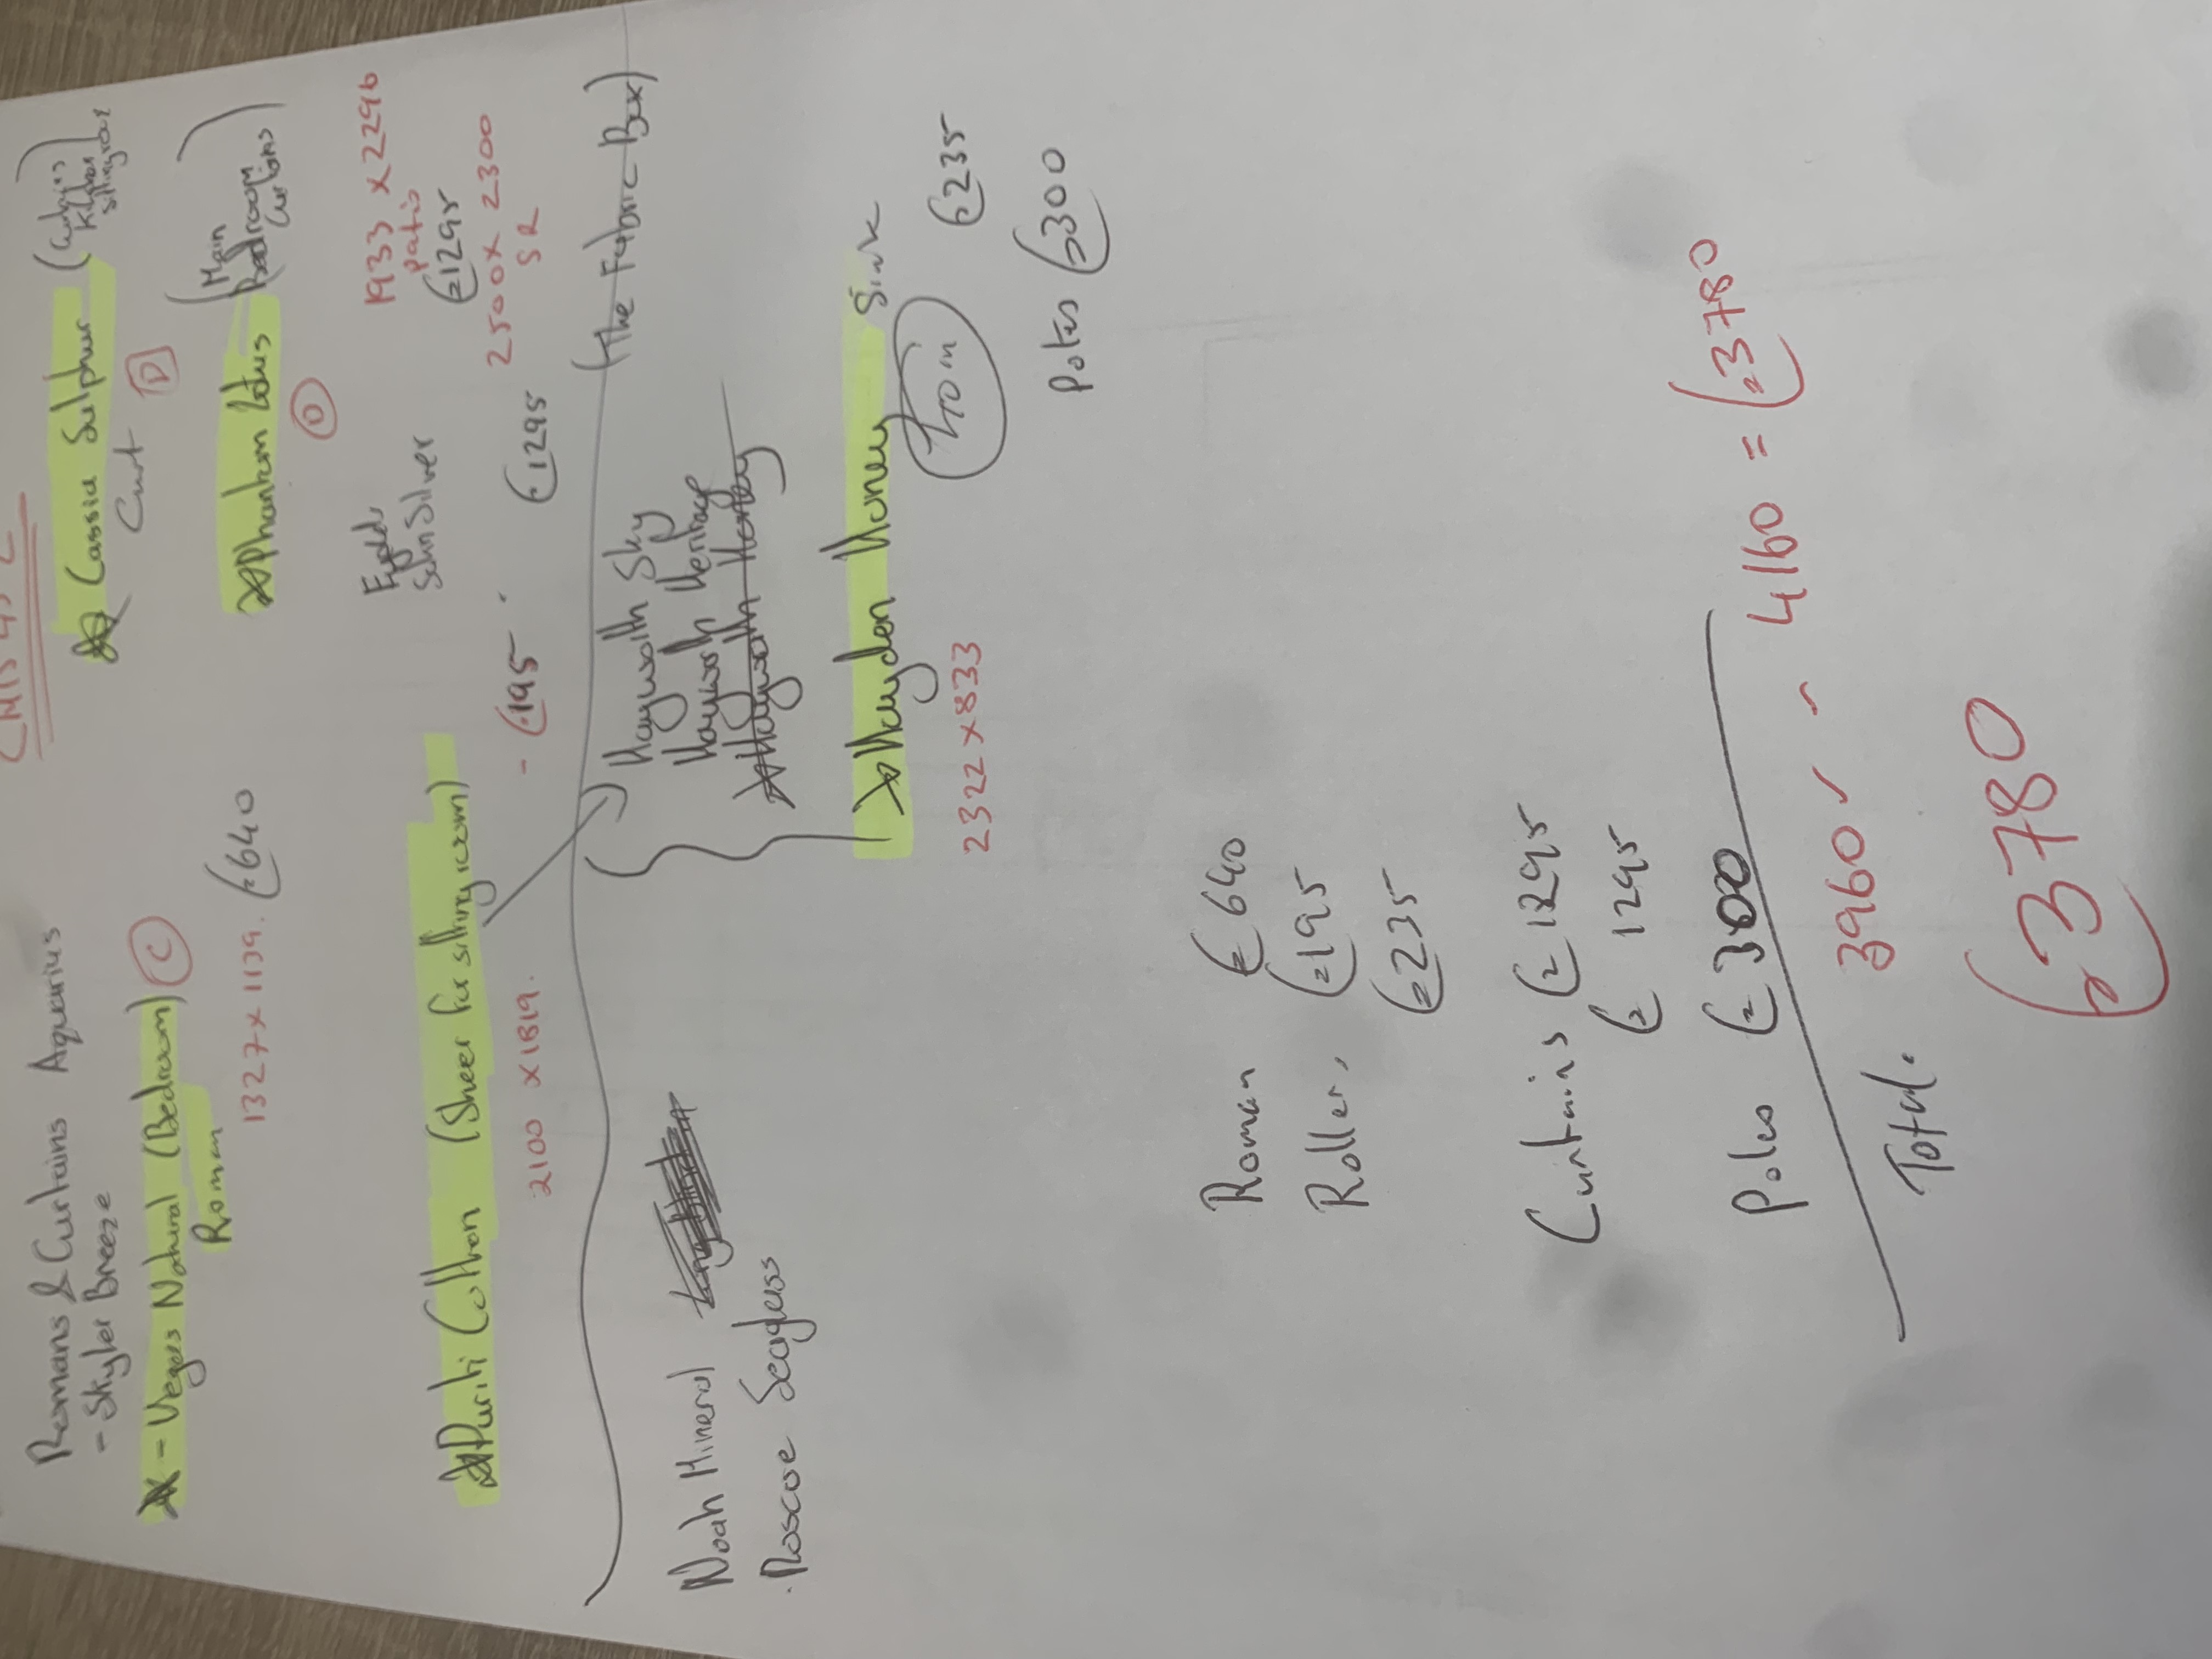 Romans & Curtains Aquarius
- Skyler Breeze
- Vegas Natural (Bedroom) C
Roman
1327 x 1139. £640
Cassia Sulphur
Curt D
Phantom Lotus (Main Bedroom Curtains)
D
1933 x 2296
patio
£1295
2500 x 2300
SR
Silver
Puriti Cotton (Sheer for sitting room)
2100 x 1819. - £195 - £1295
(The Fabric Box)
Noah Mineral
Roscoe Seaglass
Hayworth Sky
Hayworth Heritage
Hayworth Honey
Hayden Honey Sink
2322 x 833 £235
Poles £300
Roman £640
Roller, £195
£235
Curtains £1295
£1295
Poles £300
Total. 3960 4160 = £3780
£3780